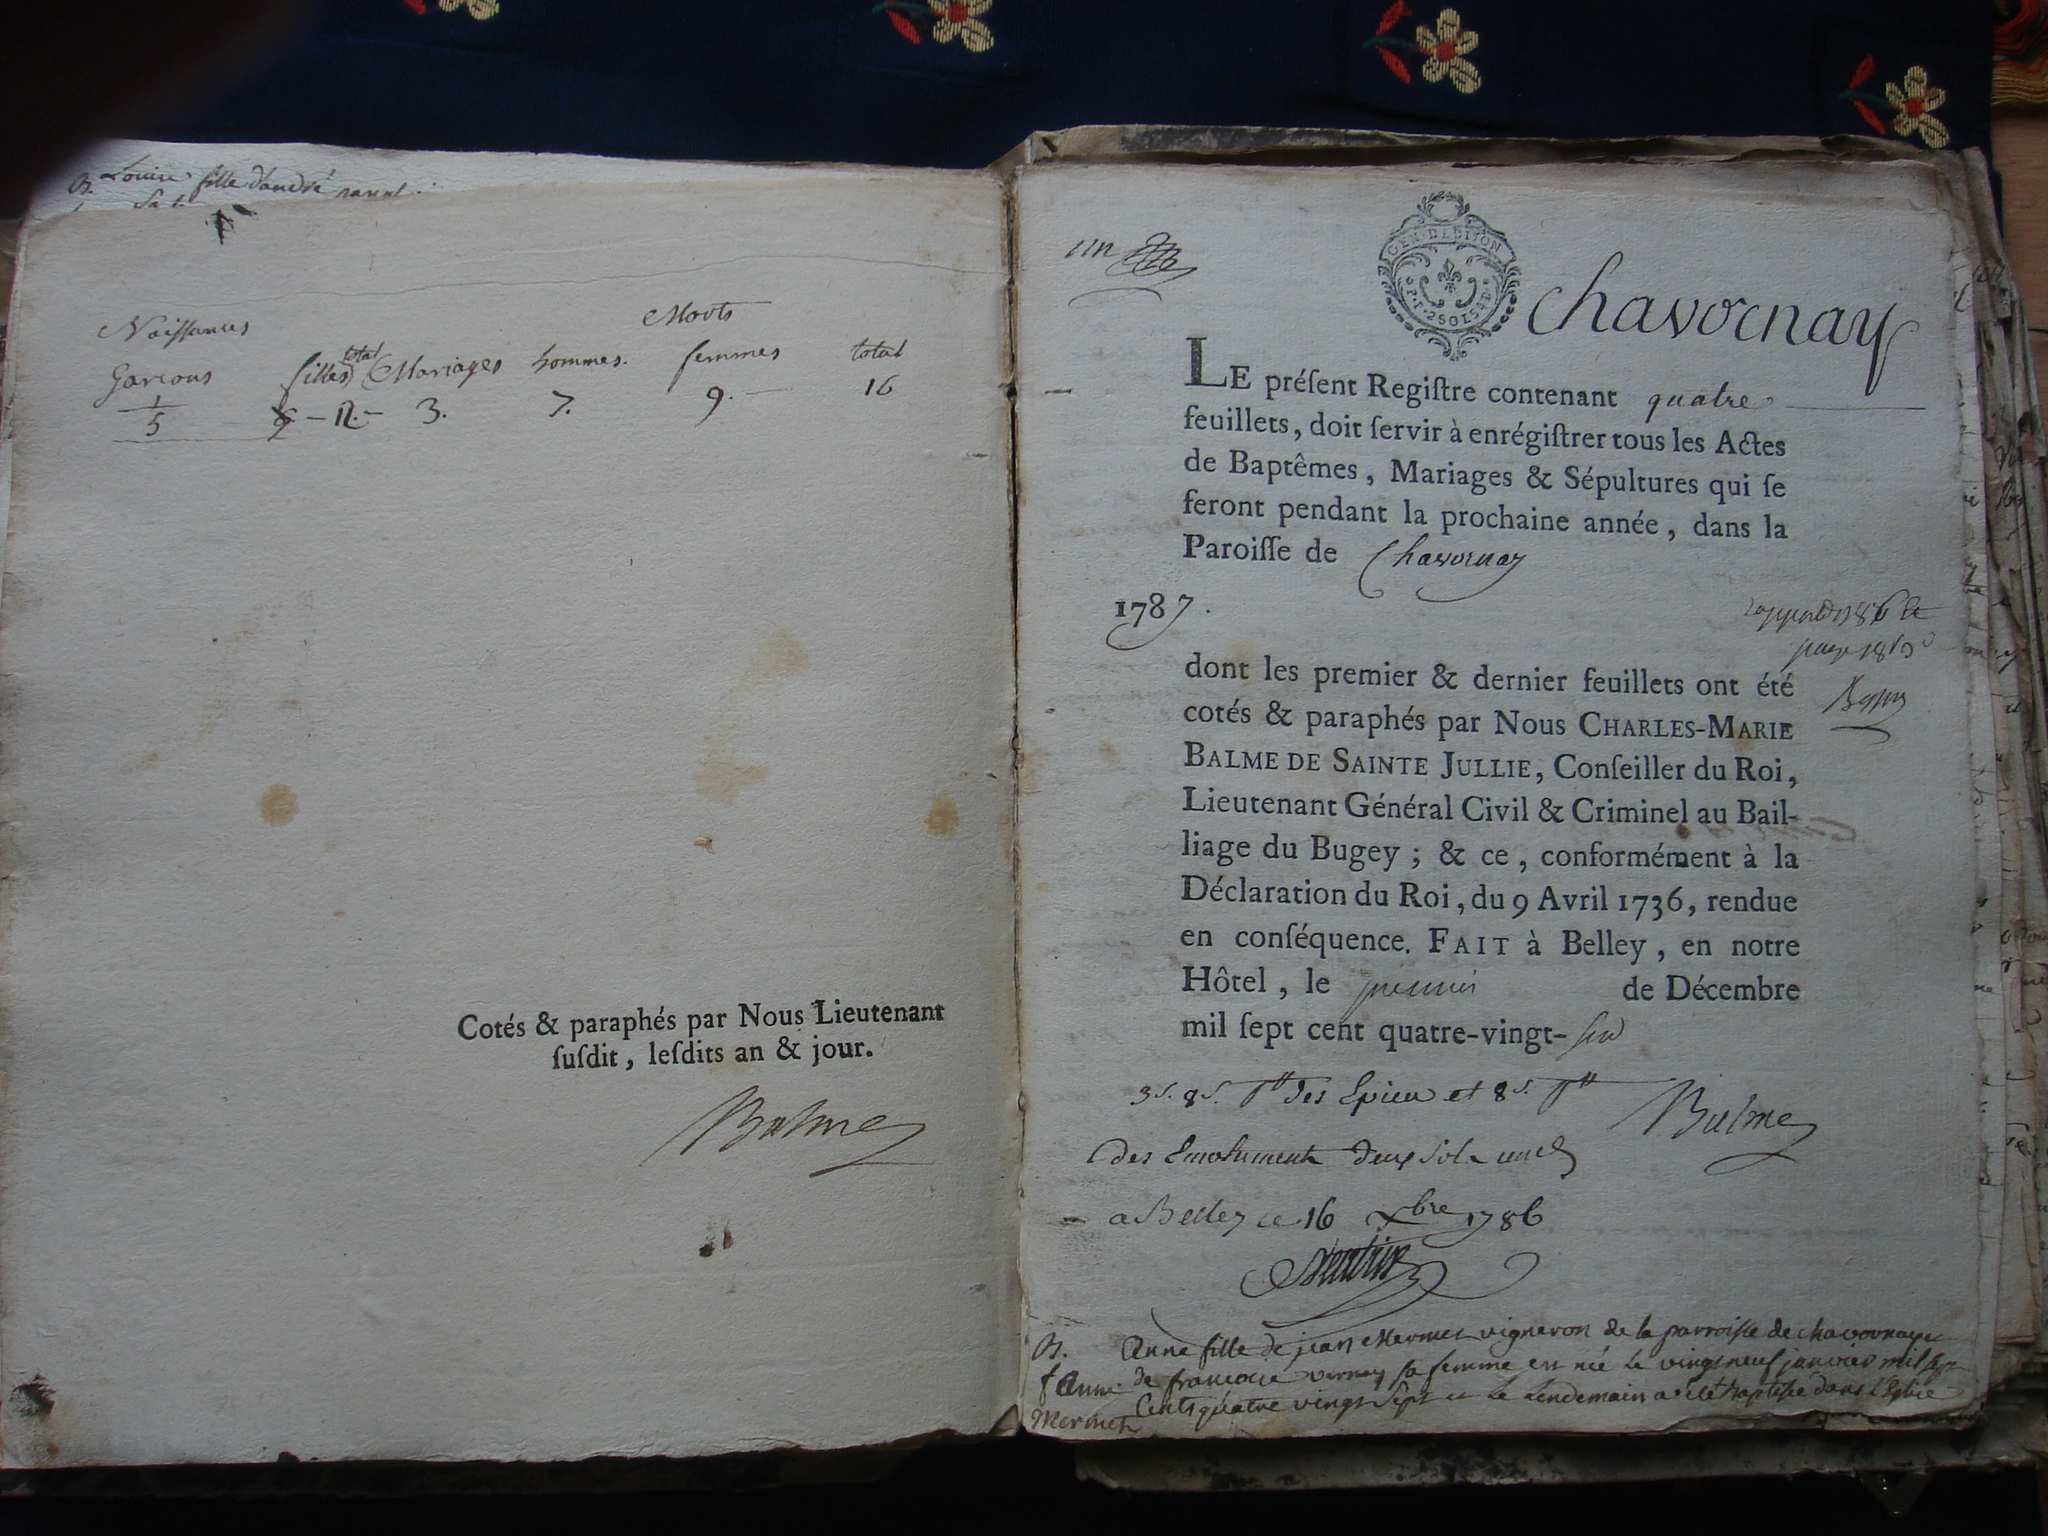 B. Louise fille d'andré
Naissances Morts
Garçons filles total Mariages hommes. femmes total
5 12. 3. 7. 9. 16
Cotés & paraphés par Nous Lieutenant
ſuſdit, leſdits an & jour.
Balme
un
GEN. DE DIJON
Chavornay
LE préſent Regiſtre contenant quatre
feuillets, doit ſervir à enrégiſtrer tous les Actes
de Baptêmes, Mariages & Sépultures qui ſe
feront pendant la prochaine année, dans la
Paroiſſe de Chavornay
1787.
dont les premier & dernier feuillets ont été
cotés & paraphés par Nous CHARLES-MARIE
BALME DE SAINTE JULLIE, Conſeiller du Roi,
Lieutenant Général Civil & Criminel au Bail-
liage du Bugey ; & ce, conformément à la
Déclaration du Roi, du 9 Avril 1736, rendue
en conſéquence. FAIT à Belley, en notre
Hôtel, le premier de Décembre
mil ſept cent quatre-vingt-ſix
3s. 8s. et 8s.
Balme
des Emoluments deux sols
a Belley ce 16 Xbre 1786
B. Anne fille de jean Mermet vigneron de la parroisse de chavornay et
f Anne de francoise vernay sa femme est née le vingt neuf janvier mil sept
Mermet Cents quatre vingt Sept et le Lendemain a été baptisée dans l'Eglise